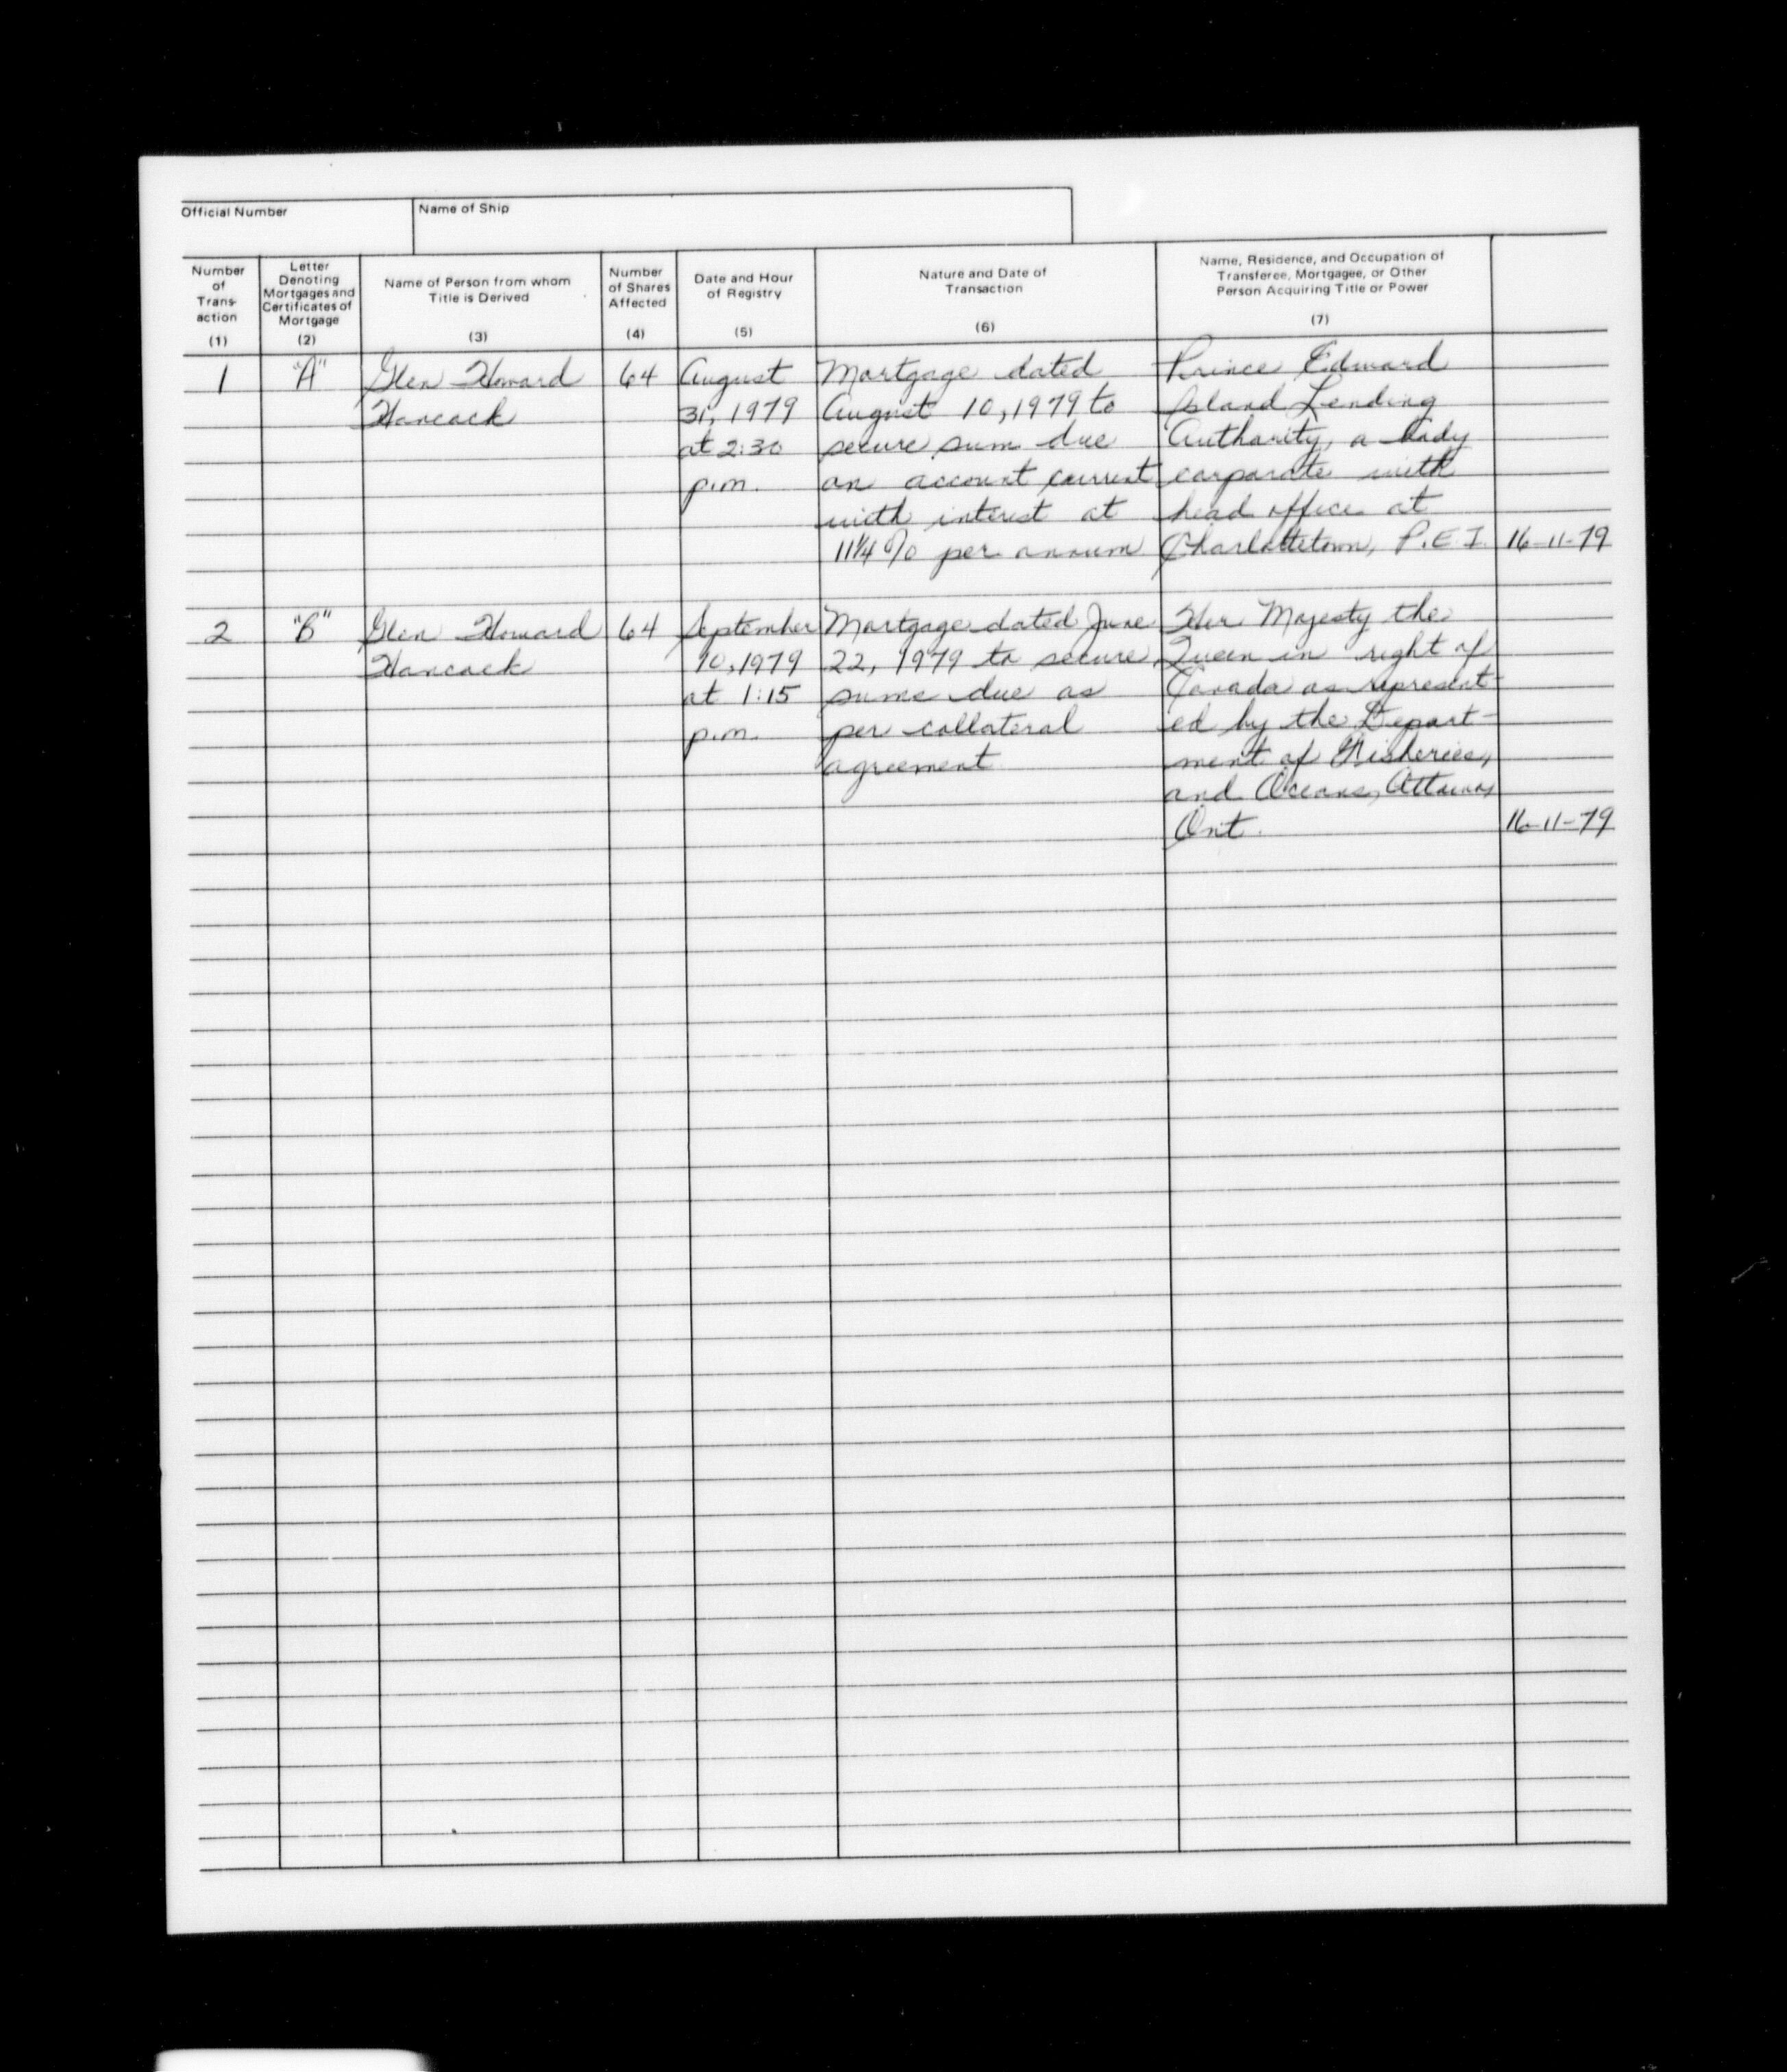 Official Number
Name of Ship
Number of Trans- action (1)
Letter Denoting Mortgages and Certificates of Mortgage (2)
Name of Person from whom Title is Derived (3)
Number of Shares Affected (4)
Date and Hour of Registry (5)
Nature and Date of Transaction (6)
Name, Residence, and Occupation of Transferee, Mortgagee, or Other Person Acquiring Title or Power (7)
1 "A" Glen Howard 64 August Mortgage dated Prince Edward
Hancock 31, 1979 August 10, 1979 to Island Lending
at 2:30 secure sum due Authority, a body
p.m. on account current corporate with
with interest at head office at
11¼% per annum Charlottetown, P.E.I. 16-11-79
2 "B" Glen Howard 64 September Mortgage dated June Her Majesty the
Hancock 10, 1979 22, 1979 to secure Queen in right of
at 1:15 sums due as Canada as represent-
p.m. per collateral ed by the Depart-
agreement ment of Fisheries,
and Oceans, Ottawa,
Ont. 16-11-79